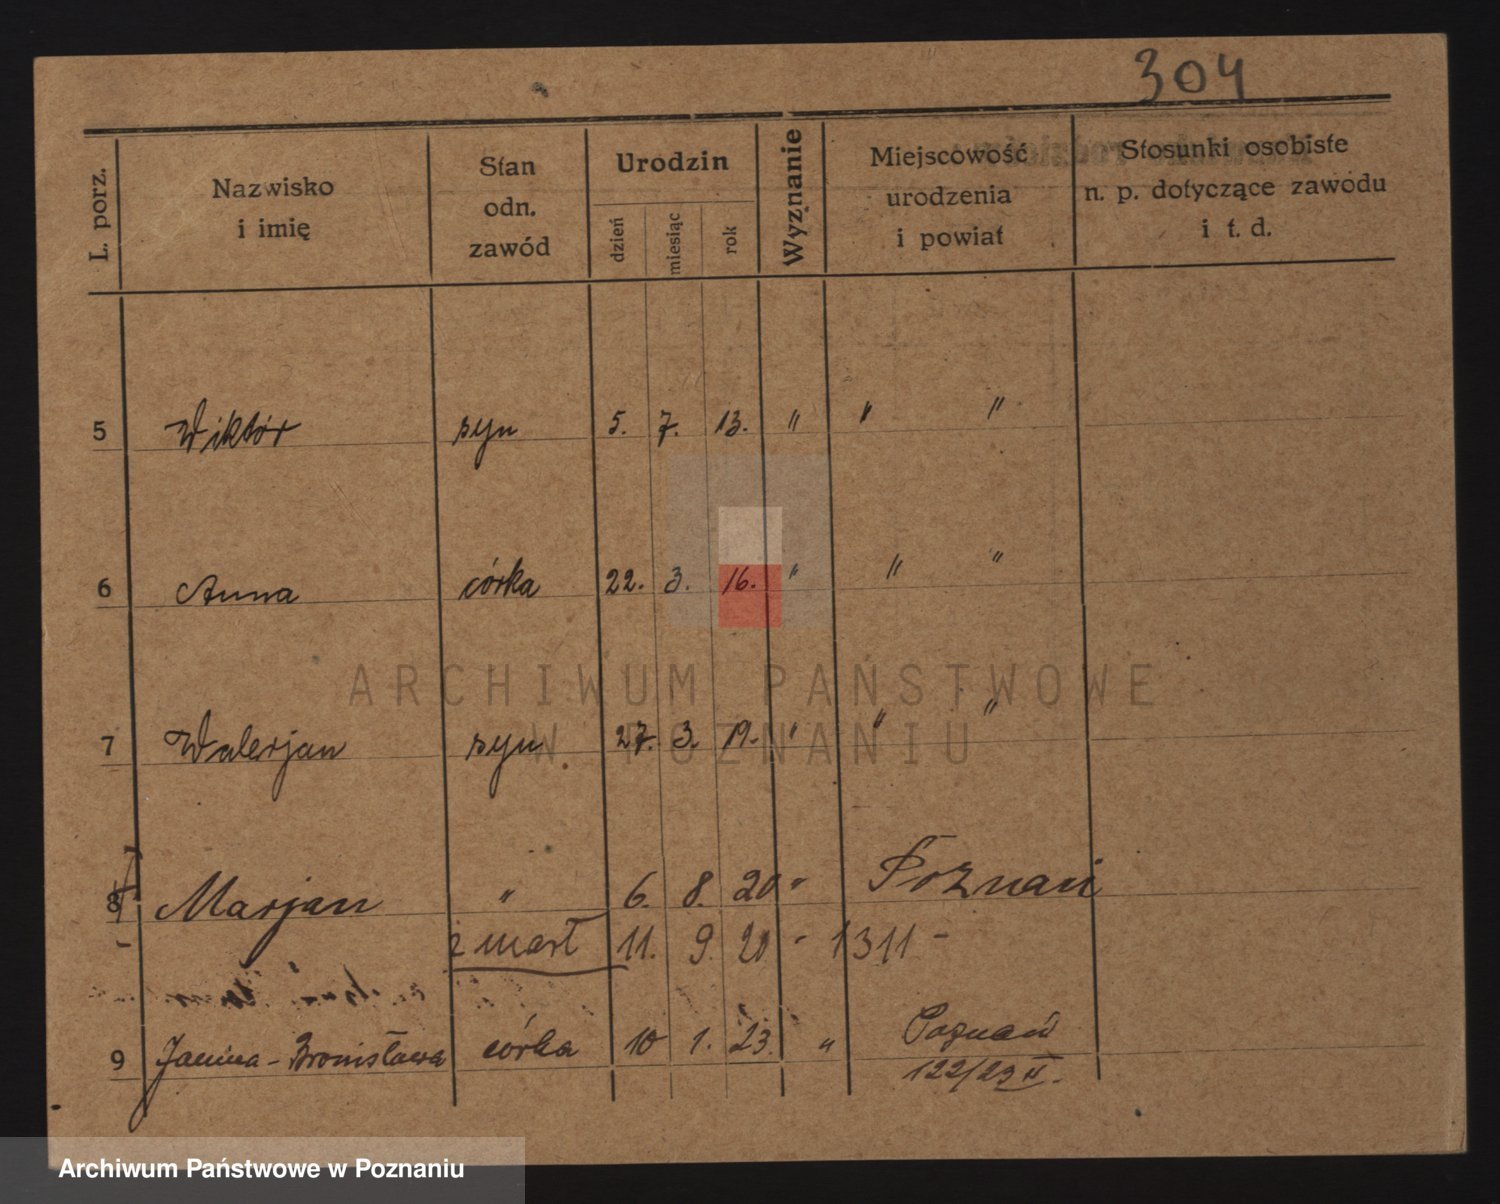 304
L. porz.
Nazwisko
i imię
Stan
odn.
zawód
Urodzin
dzień
miesiąc
rok
Wyznanie
Miejscowość
urodzenia
i powiat
Stosunki osobiste
n. p. dotyczące zawodu
i t. d.
5 Wiktór syn 5. 7. 13. " " "
6 Anna córka 22. 3. 16. " " "
7 Walerjan syn 27. 3. 19. " " "
ARCHIWUM PAŃSTWOWE
W POZNANIU
8 Marjan " 6. 8. 20 " Poznań
zmarł 11. 9. 20 - 1311 -
9 Janina - Bronisława córka 10 1. 23. " Poznań
122/23 II.
Archiwum Państwowe w Poznaniu